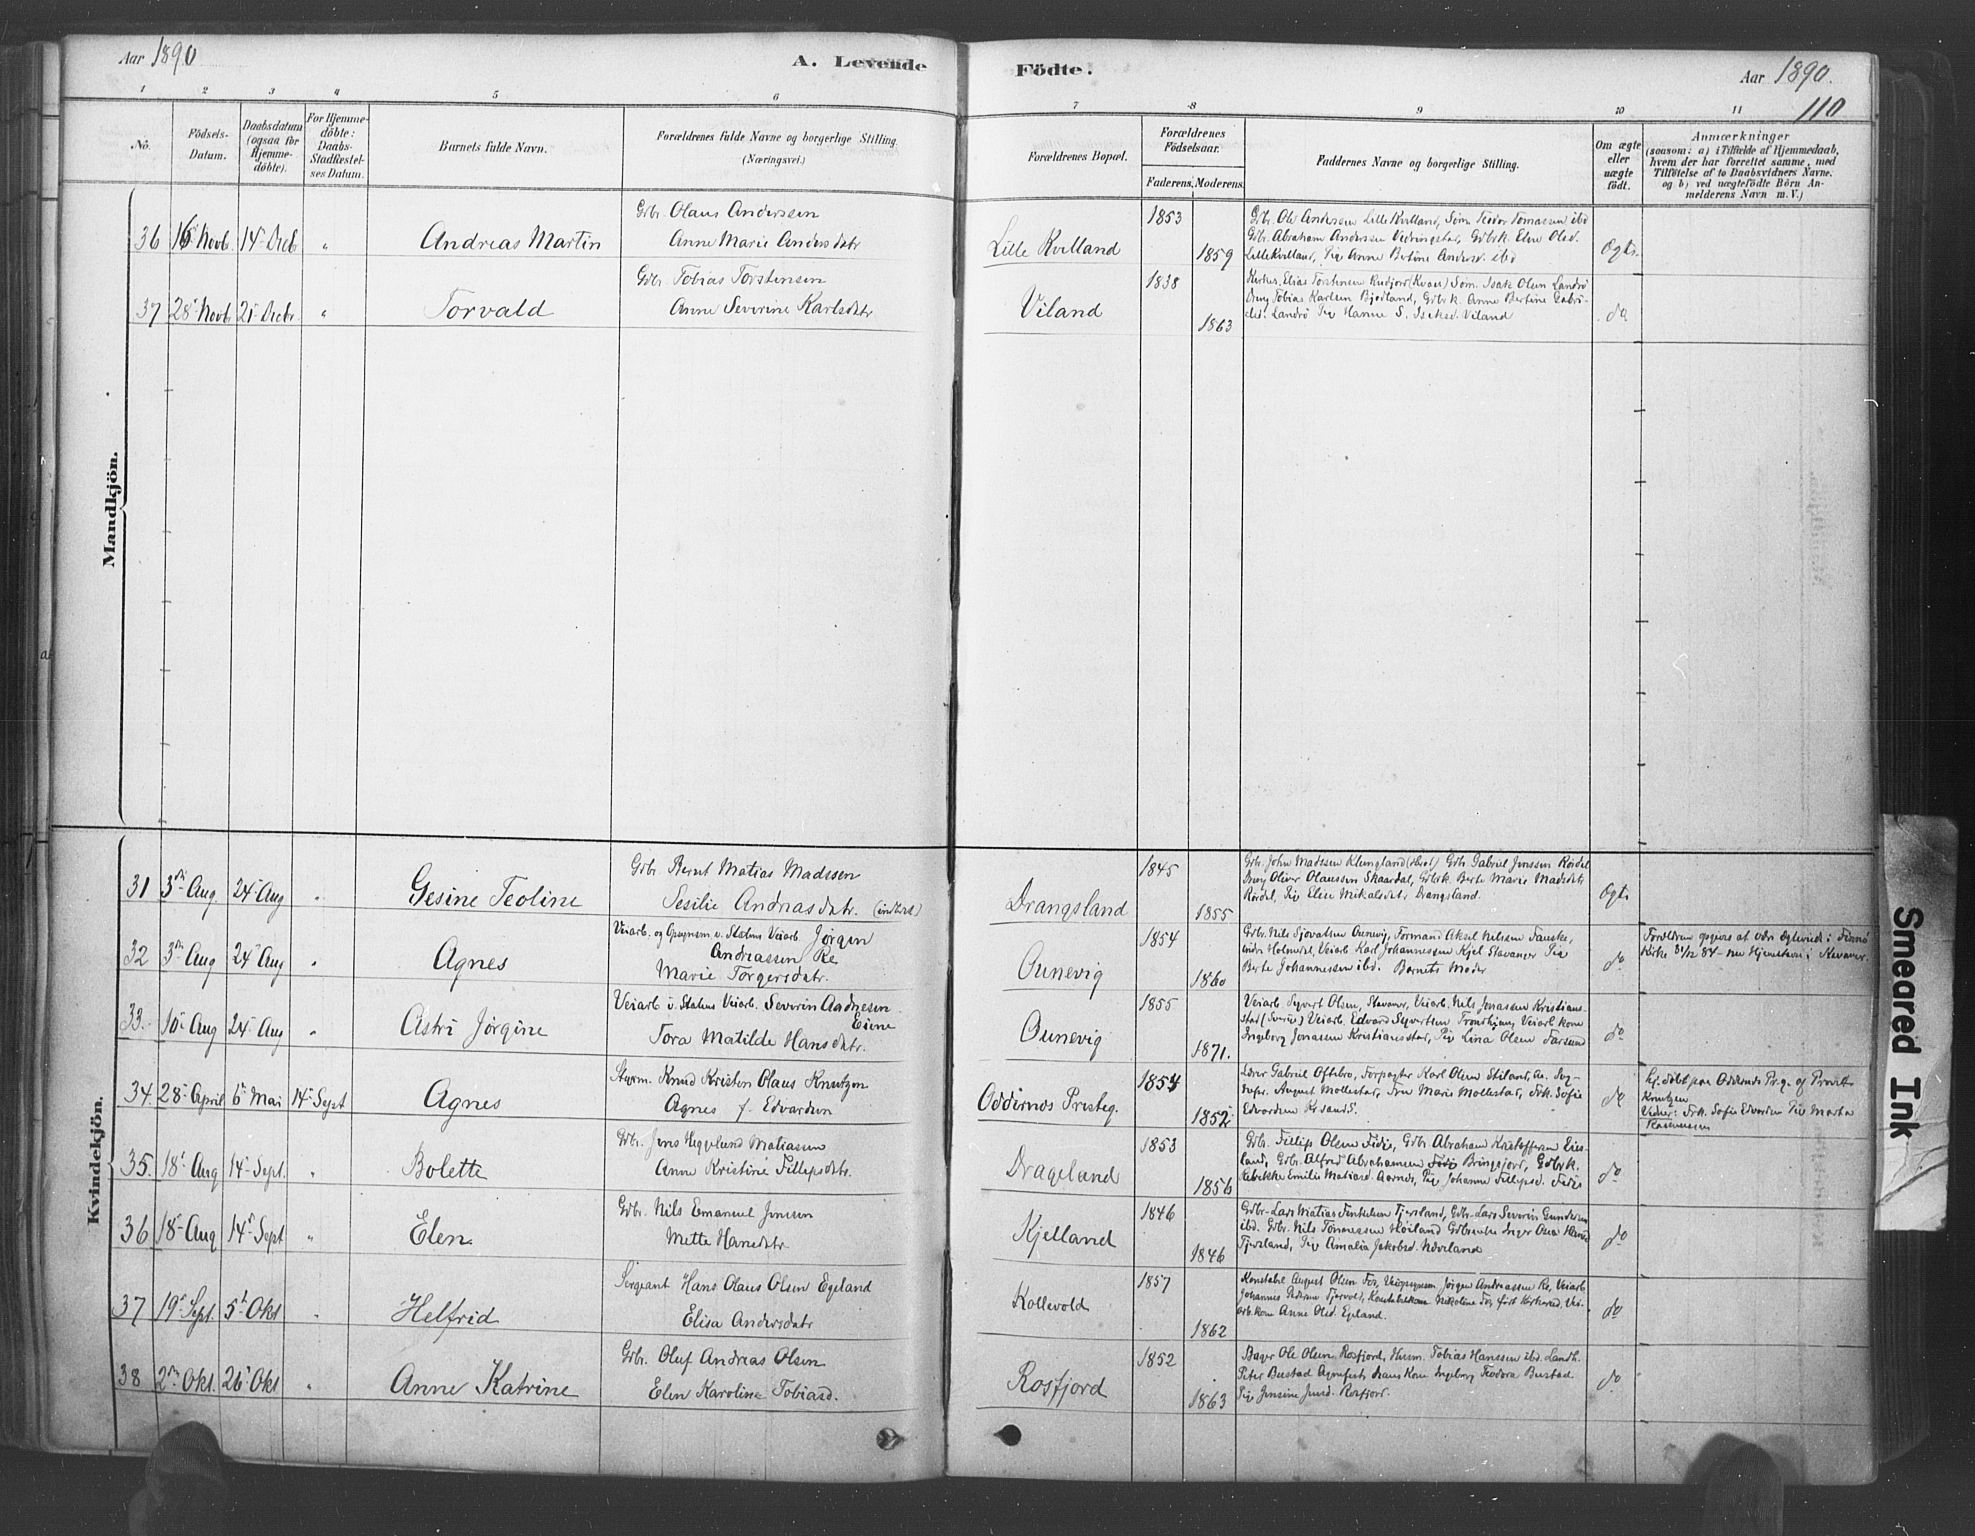 Aar 1890
A. Levende
Födte.
Aar 1890.
110
1 2 3 4 5 6 7 8 9 10 11
No.
Födsels-
Datum.
Daabsdatum
(ogsaa for
Hjemme-
döbte).
For Hjemme-
döbte:
Daabs-
Stadfæstel-
ses Datum.
Barnets fulde Navn.
Forældrenes fulde Navne og borgerlige Stilling.
(Næringsvei.)
Forældrenes Bopæl.
Forældrenes
Födselsaar.
Faderens. Moderens.
Faddernes Navne og borgerlige Stilling.
Om ægte
eller
uægte
födt.
Anmærkninger
(saasom: a) i Tilfælde af Hjemmedaab,
hvem der har forrettet samme, med
Tilföielse af to Daabsvidners Navne.
og b) ved uægtefödte Börn An-
melderens Navn m. V.)
Mandkjön.
36 16 Novb. 14 Decb " Andreas Martin
Gdbr. Olaus Andersen
Anne Marie Andersdatr
Lille Kvilland
1853
1859
Gdbr. Ole Andersen Lille Kvilland, Søm. Teodor Tomassen ibd
Gdbr. Abraham Andersen Vedringstad, Gdbrk. Elene Olsd.
Lille Kvilland, Pige Anne Bertine Andersd. ibd
Ægte.
37 28 Novb. 21 Decbr. " Torvald
Gdbr. Tobias Torstensen
Anne Severine Karlsdatr
Viland
1838
1863
Elias Torstensen Rudjord (Kvaas) Søm. Isak Olsen Landrø
Ung. Tobias Karlsen Bjodland, Gdbrk. Anne Bertine Gabri-
elsd. Landrø Pige Hanne S. Isaksd. Viland
do
Kvindekjön.
31 3die Aug 24 Aug " Gesine Teoline
Gdbr. Bernt Matias Madssen
Sesilie Andreasdatr. (indtest)
Drangsland
1845
1855
Gdbr. John Madssen Klungland Gdbr. Gabriel Jenssen Rørdal
Ung. Oliver Olaussen Skaardal, Gdbrk. Berte Marie Madsdatr
Rørdal, Pige Elise Mikalsdatr. Drangsland.
Ægte
32 3die Aug 24 Aug " Agnes
Veiarb. og Opsynsm. v. Statens Veiarb. Jørgen
Andreassen Re
Marie Torgersdatr.
Ounevig
1854
1860
Gdbr. Nils Sjovatsen Ounevig, Formand Aksel Nilsen Fauske,
Holmesl, Veiarb. Karl Johannessen Kjel Stavanger Pige
Berte Johannessen ibd. Barnets Moder
do
Forældrene opgives at være ægteviede i Finnø
Kirke 31/12 84
33. 10 Aug 24 Aug " Astri Jørgine
Veiarb v. Statens Veiarb. Severin Aadnesen
Eiene
Tora Matilde Hansdatr.
Ounevig
1855
1871.
Veiarb. Syvert Olsen, Stavanger, Veiarb. Nils Jonassen Kristians-
stad (Sverige) Veiarb. Edvard Syvertsen Trondhjem, Veiarb. kone
Ingeborg Jonassen Kristiansstad, Pige Lina Olsen Farsund
do
34. 28 April 6 Mai 14 Sept Agnes
Styrm. Knud Kristen Olaus Knutzen
Agnes f. Edvardsen
Oddernes Presteg.
1854
1852
Lærer Gabriel Oftebro, Forpagter Karl Olsen
August Mollestad, Fru Marie Mollestad, Frk. Sofie
Edvardsen Krsand S.
do
Hj.døbt paa Oddernes Pr.g. af Provst
Knutzen
Vidner: Frk. Sofie Edvardsen Pige Marta
Rasmussen
35. 18 Aug 14 Sept. " Bolette
Gdbr. Jens Heggelund Matiassen
Anne Kristine Fillipsdatr.
Drageland
1853
1856
Gdbr. Fillip Olsen Fidje, Gdbr. Abraham Kristoffersen
land, Gdbr. Alfred Abrahamsen Fidje Bringsjord, Gdbrk.
Rebekke Emilie Matiasd. Aarnes, Pige Johanne Fillipsd. Fidje
do
36 18 Aug 14 Sept " Elen
Gdbr. Nils Emanuel Jensen
Mette Hansdatr
Kjelland
1846
1846
Gdbr. Lars Matias Tjersland, Gdbr. Lars Severin Gundersen
ibd. Gdbr. Nils Tønnessen Høiland Inger
Tjersland, Pige Amalia Jakobsd.
do
37 19 Sept. 5te Okt " Helfrid
Sergeant Hans Olaus Olsen Egeland
Elisa Andersdatr
Kollevold
1857
1862
Konstabel August Olsen Foss, Veiopsynsm. Jørgen Andreassen Re, Veiarb.
Johannes Konstabelkone Nikoline Foss født Kirkerud, Vei-
arb.kone Anne Olsd. Egeland.
do
38 2den Okt. 26 Okt " Anne Katrine
Gdbr. Oluf Andreas Olsen
Elen Karoline Tobiasd.
Rosfjord
1852
1863
Bager Ole Olsen Rosfjord, Husm. Tobias Hanssen ibd. Landh.
Peter Bustad Agnefest, hans Kone Ingeborg Teodora Bustad
Pige Jensine Jensd. Rosfjord.
do
Smeared Ink